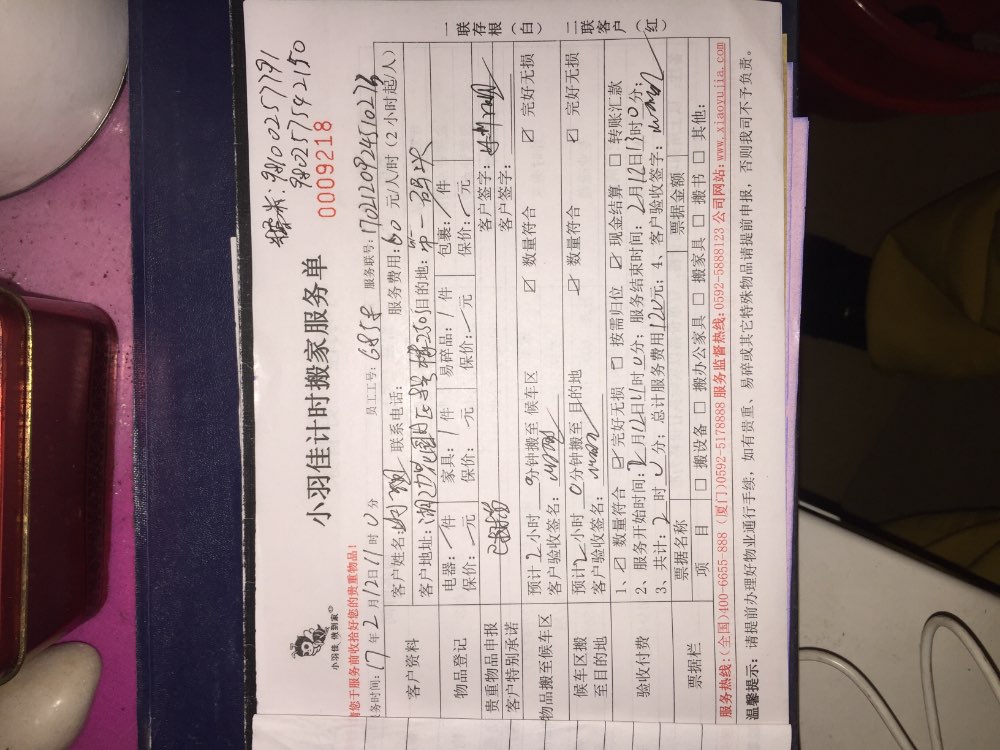 98100257191
980257542150
小羽佳计时搬家服务单
0009218
小羽佳 携到家
请您于服务前收拾好您的贵重物品!
务时间: 17年2月12日11时0分 员工工号: 685 服务联号: 170212092451026
客户资料 客户姓名: 联系电话: 服务费用: 60元/人/时 (2小时起/人)
客户地址: 湖边花园A区 2505 目的地: 第一码头
物品登记 电器: 件 家具: 1件 易碎品: 1件 包裹: 件
保价: 元 保价: 元 保价: 元 保价: 元
贵重物品申报 客户签字:
客户特别承诺 客户签字:
物品搬至候车区 预计2小时0分钟搬至候车区 ☑ 数量符合 ☑ 完好无损
客户验收签名:
候车区搬至目的地 预计2小时0分钟搬至目的地 ☑ 数量符合 ☑ 完好无损
客户验收签名:
验收付费 1、☑ 数量符合 ☑ 完好无损 □ 按需归位 ☑ 现金结算 □ 转账汇款
2、服务开始时间: 2月12日11时0分; 服务结束时间: 2月12日13时0分;
3、共计: 2时0分; 总计服务费用120元; 4、客户验收签字:
票据栏 票据名称 票据金额
项目 □ 搬设备 □ 搬办公家具 □ 搬家具 □ 搬书 □ 其他:
服务热线: (全国)400-6655-888 (厦门)0592-5178888 服务监督热线: 0592-5888123 公司网站: www.xiaoyujia.com
温馨提示: 请提前办理好物业通行手续, 如有贵重、易碎或其它特殊物品请提前申报, 否则我司不予负责。
一联存根(白) 二联客户(红)